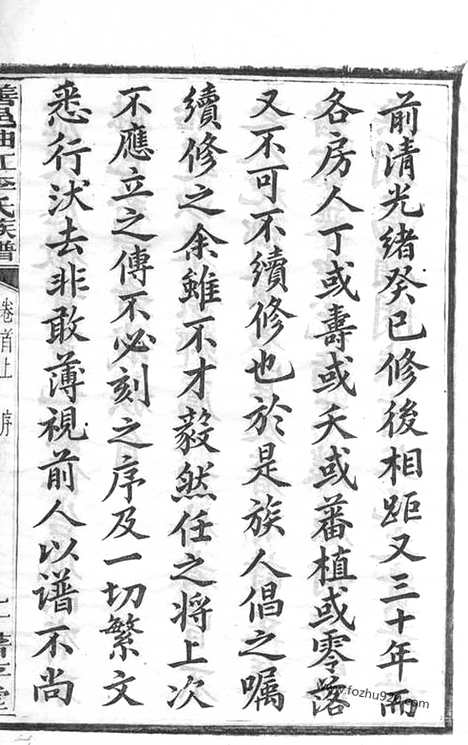 前清光緒癸巳修後相距又三十年而
各房人丁或壽或夭或蕃植或零落
又不可不續修也於是族人倡之囑
續修之余雖不才毅然任之將上次
不應立之傳不必刻之序及一切繁文
悉行汰去非敢薄視前人以谱不尚
善邑油江李氏族譜
卷首上 序
www.fozhu920.com